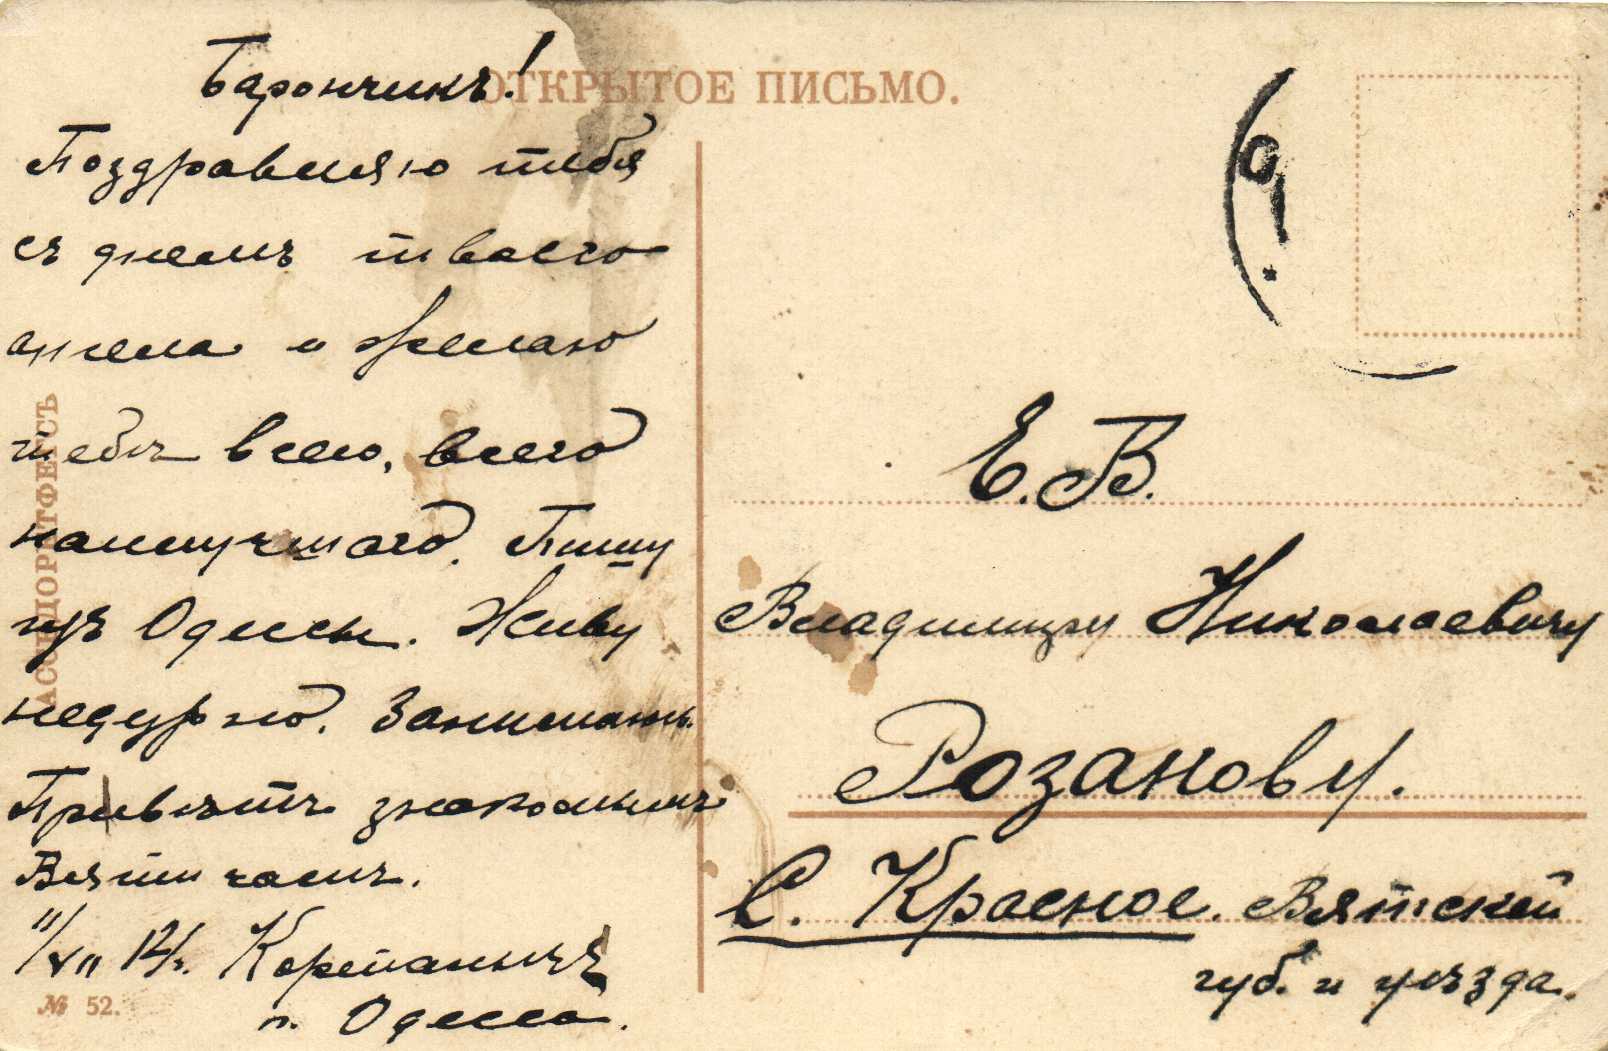 ОТКРЫТОЕ ПИСЬМО.
Барончикъ!
Поздравляю тебя
съ днемъ твоего
ангела и желаю
тебѣ всего, всего
наилучшаго. Пишу
изъ Одессы. Живу
недурно. Занимаюсь.
Привѣтъ знакомымъ
Вятичамъ.
11/VII 12 г.
г. Одесса.
№ 52.
АССЕДОРЕТФЕГСЪ
Е. В.
Владимиру Николаевичу
Розанову.
С. Красное. Вятской
губ. и уѣзда.